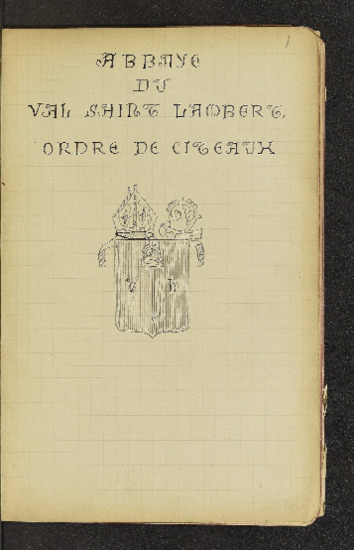 1
ABBAYE
DU
VAL SAINT LAMBERT,
ORDRE DE CITEAUX